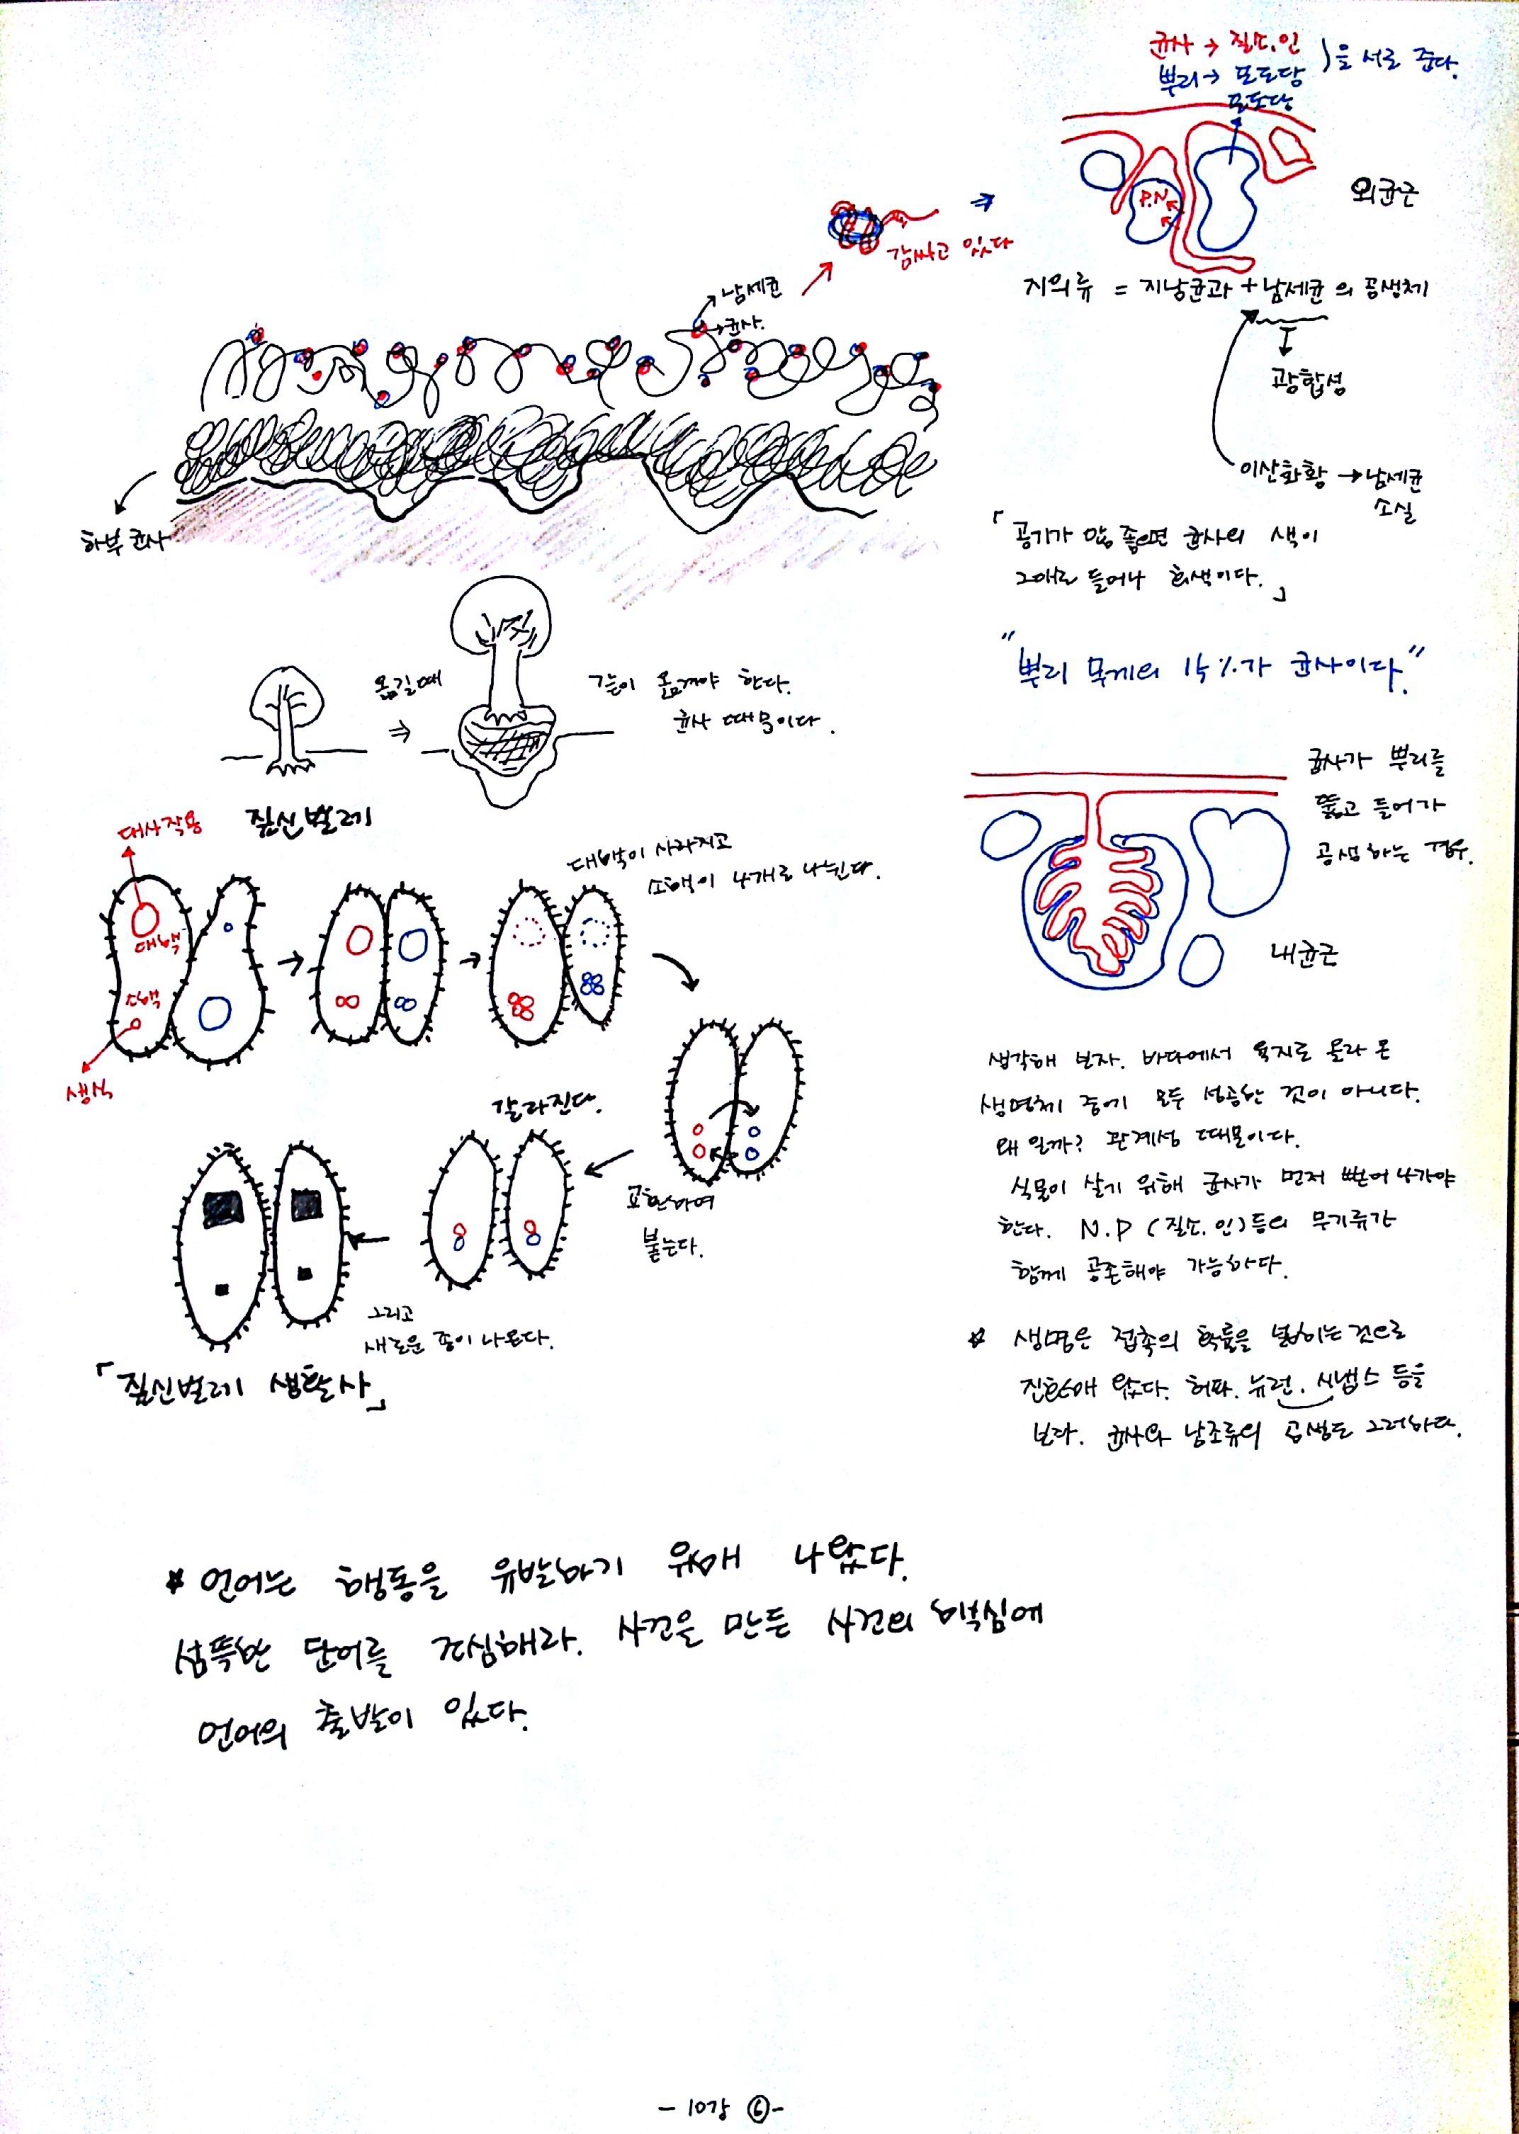 균사 → 질소.인
뿌리 → 포도당 )을 서로 준다.
포도당
P.N
외균근
감싸고 있다
지의류 = 자낭균과 + 남세균의 공생체
광합성
이산화황 → 남세균
소실
남세균
균사.
하부 균사
「공기가 안 좋으면 균사의 색이
그대로 들어나 회색이다.」
"뿌리 무게의 15%가 균사이다."
옮길때
같이 옮겨야 한다.
균사 때문이다.
균사가 뿌리를
뚫고 들어가
공생하는 경우.
내균근
짚신벌레
대사작용
대핵
소핵
생식
대핵이 사라지고
소핵이 4개로 나뉜다.
교환하여
붙는다.
갈라진다.
그리고
새로운 종이 나온다.
「짚신벌레 생활사」
생각해 보자. 바다에서 육지로 올라 온
생명체 중에 모두 성공한 것이 아니다.
왜 일까? 관계성 때문이다.
식물이 살기 위해 균사가 먼저 뻗어 나가야
한다. N.P (질소.인)등의 무기류가
함께 공존해야 가능하다.
* 생명은 접촉의 확률을 넓히는 것으로
진화해 왔다. 허파. 뉴런. 시냅스 등을
보라. 균사와 남조류의 공생도 그러하다.
* 언어는 행동을 유발하기 위해 나왔다.
섬뜩한 단어를 조심해라. 사건을 만든 사건의 핵심에
언어의 출발이 있다.
- 10강 ⑥ -